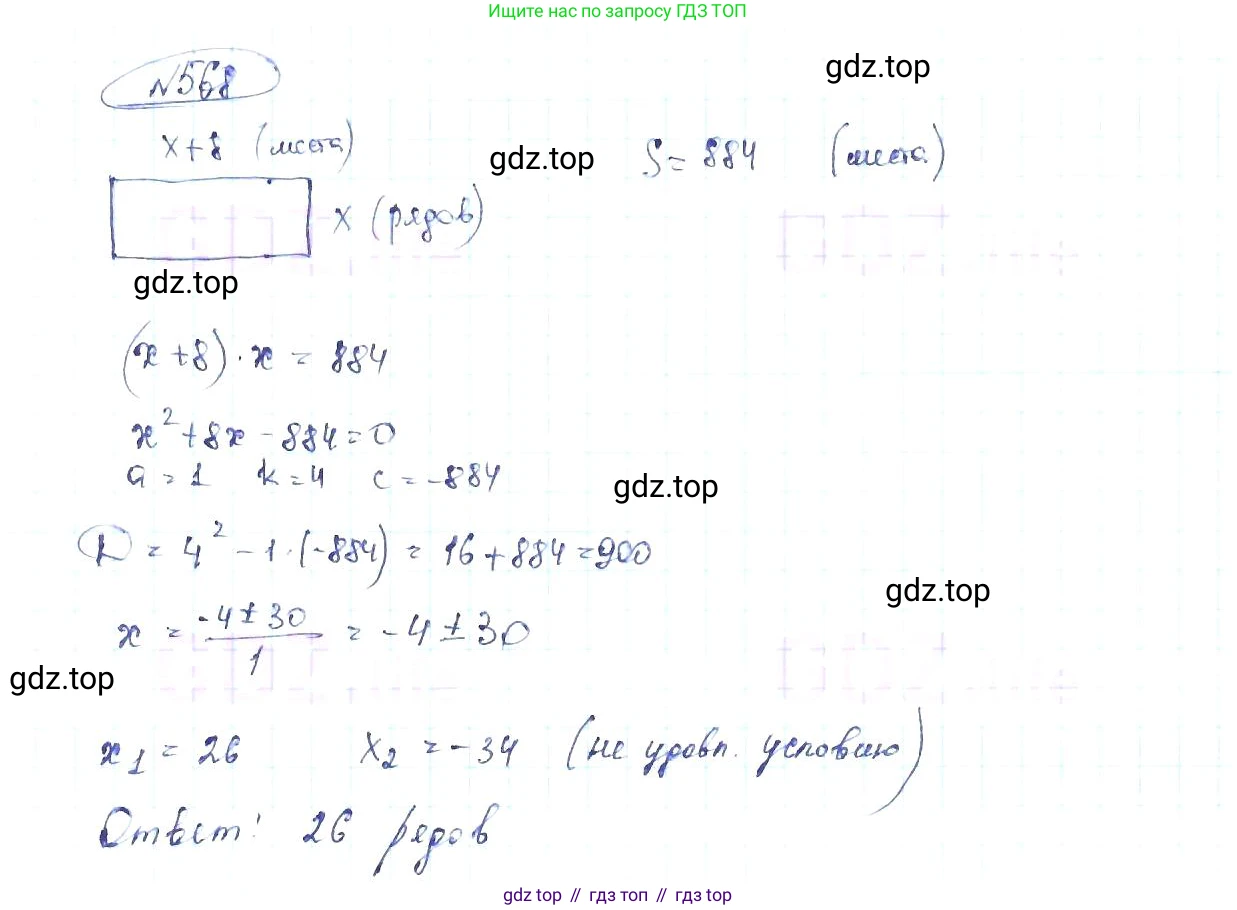 Ищите нас по запросу ГДЗ ТОП
№568
gdz.top
x+8 (места)
gdz.top
S = 884 (места)
x (рядов)
gdz.top
(x+8)·x = 884
x²+8x-884=0
a=1 k=4 c=-884
gdz.top
D = 4² - 1·(-884) = 16+884=900
gdz.top
x = \frac{-4±30}{1} = -4±30
gdz.top
x₁ = 26 x₂ = -34 (не удовл. условию)
Ответ: 26 рядов
gdz top // гдз топ // гдз top